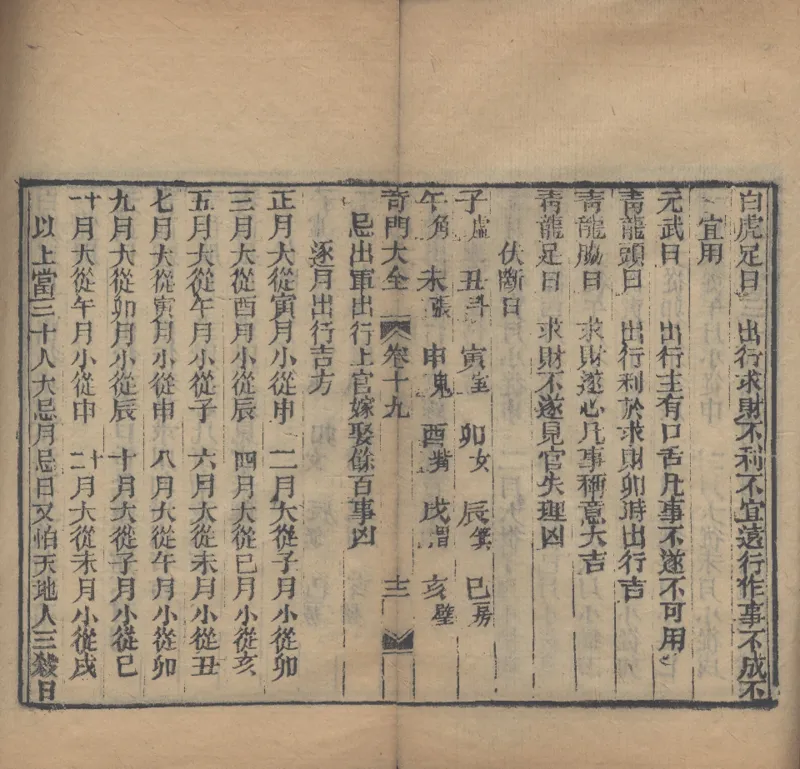 白虎足日 出行求財不利不宜遠行作事不成不
宜用
元武日 出行主有口舌凡事不遂不可用
青龍頭日 出行利於求財卯時出行吉
青龍脇日 求財遂心凡事稱意大吉
青龍足日 求財不遂見官失理凶
伏斷日
子虛 丑斗 寅室 卯女 辰箕 巳房
午角 未張 申鬼 酉觜 戌胃 亥壁
奇門大全 卷十九 十二
忌出軍出行上官嫁娶餘百事凶
逐月出行吉方
正月大從寅月小從申 二月大從子月小從卯
三月大從酉月小從辰 四月大從巳月小從亥
五月大從午月小從子 六月大從未月小從丑
七月大從寅月小從申 八月大從午月小從卯
九月大從卯月小從辰 十月大從子月小從巳
十一月大從午月小從申 十二月大從未月小從戌
以上當三十人大忌月忌日又怕天地人三殺日